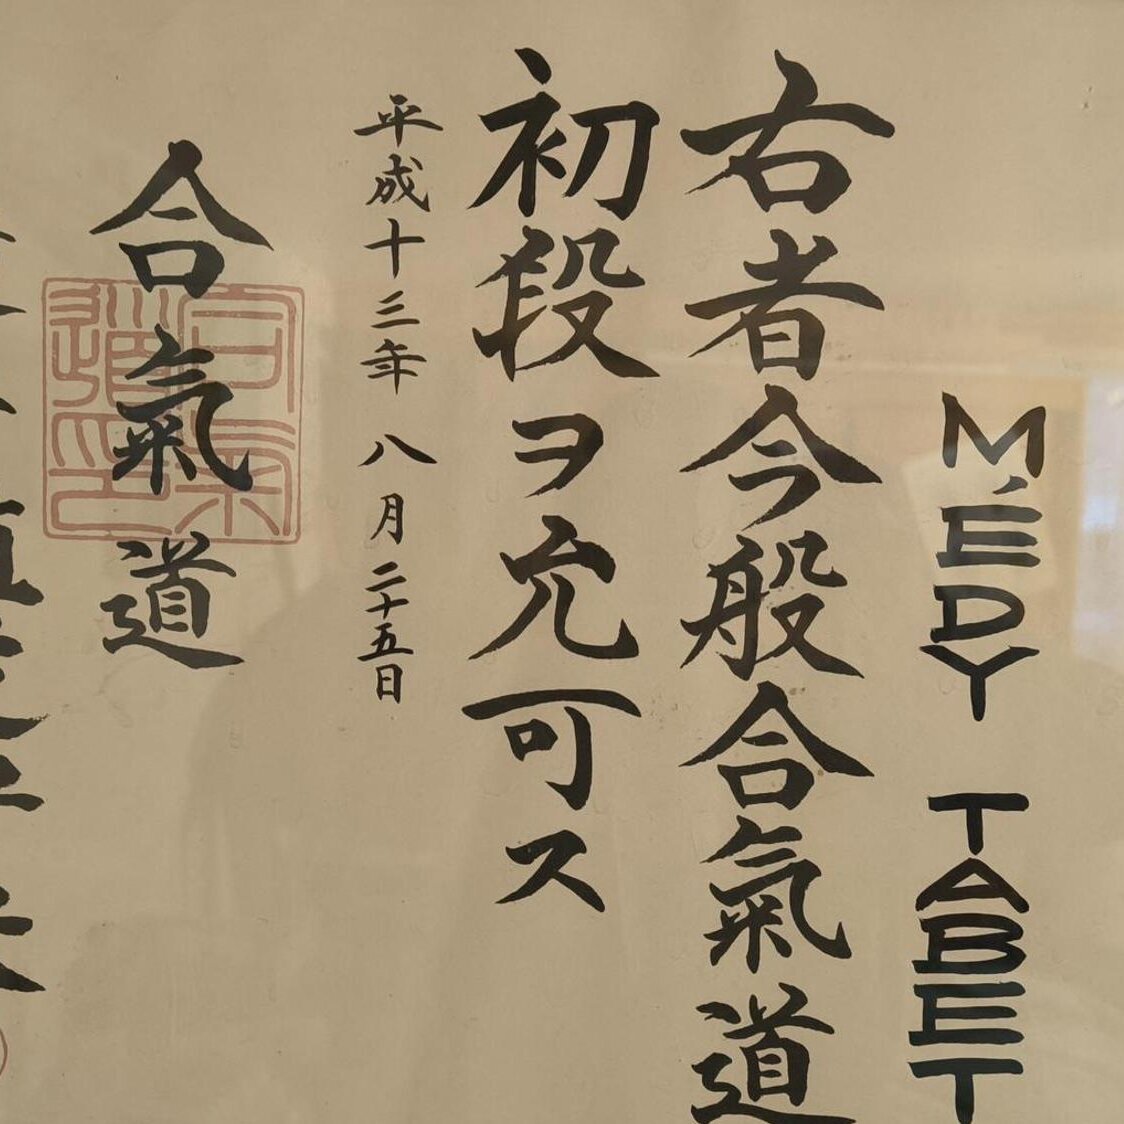 MÉDY TABET
右者今般合氣道
初段ヲ允可ス
平成十三年 八月二十五日
合氣道